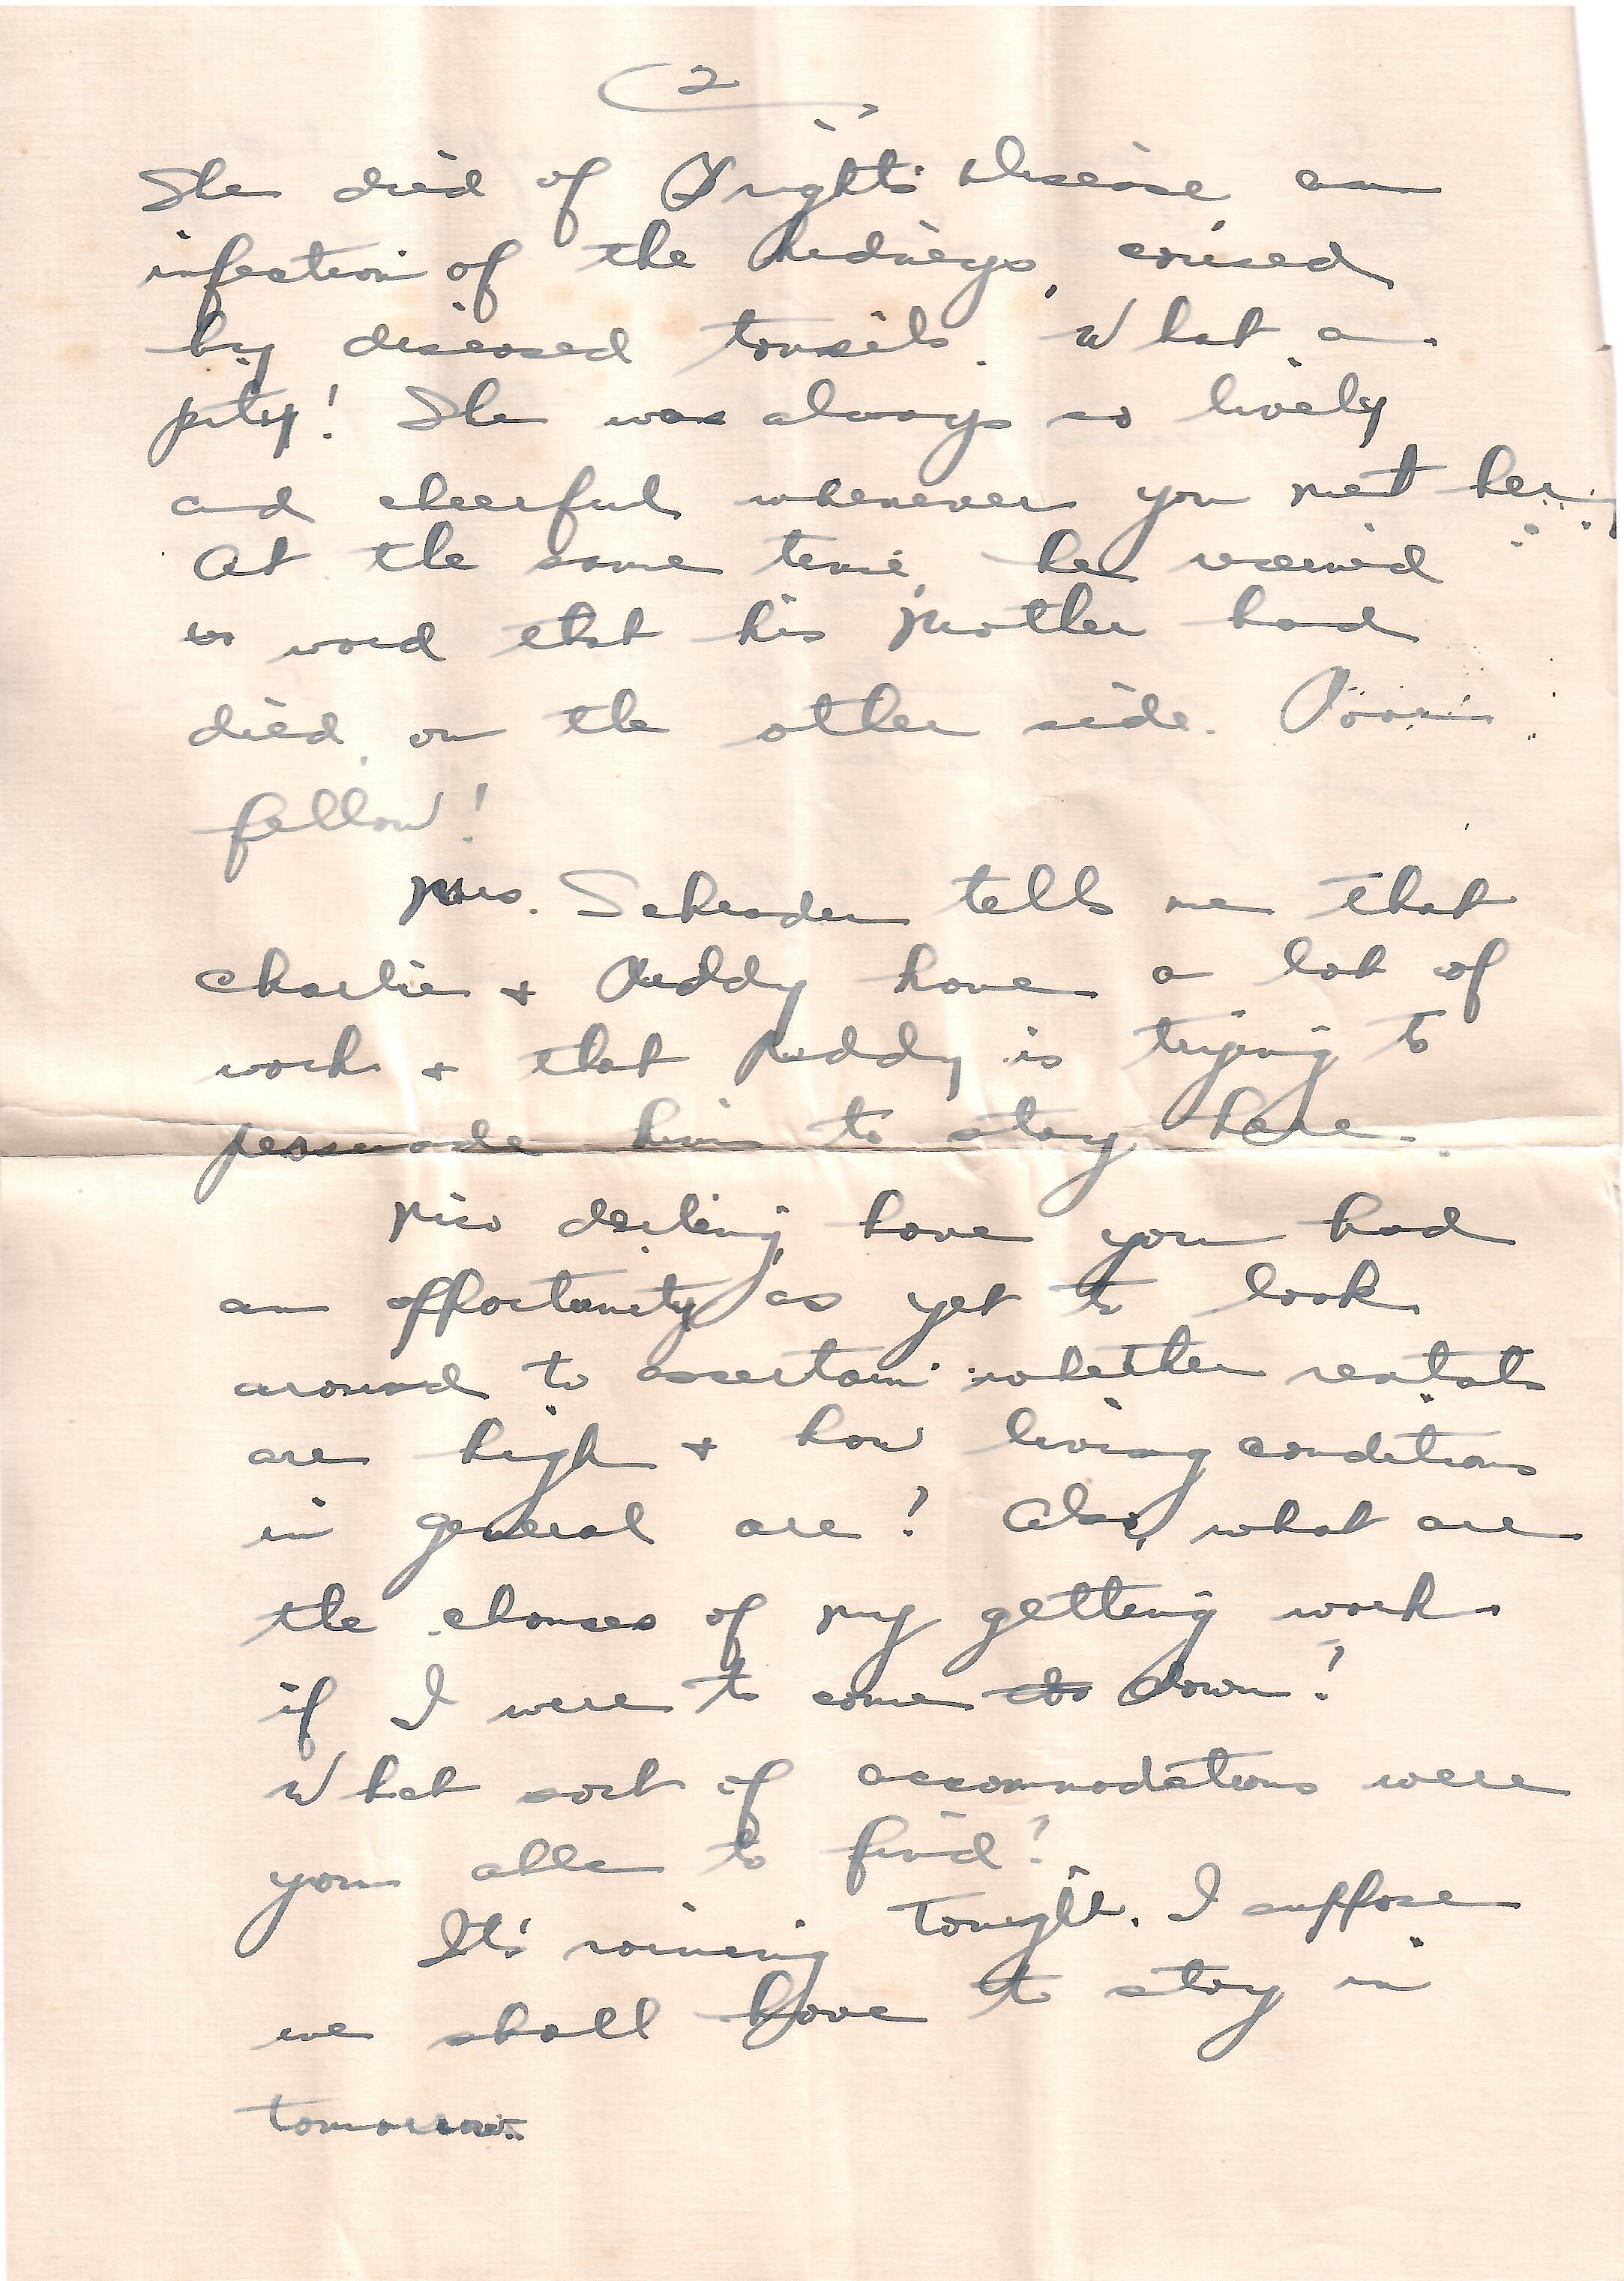 2
She died of Brights disease, an
infection of the kidneys, caused
by diseased tonsils. What a
pity! She was always so lively
and cheerful whenever you met her.
At the same time, he received
word that his mother had
died, on the other side. Poor
fellow!
Mrs. Schrader tells me that
Charlie + Ruddy have a lot of
work + that Ruddy is trying to
persuade him to stay here.
darling, have you had
an opportunity as yet to look
around to ascertain whether rentals
are high + how living conditions
in general are? Also, what are
the chances of my getting work
if I were to come down?
What sort of accommodations were
you able to find?
It's raining tonight. I suppose
we shall have to stay in
tomorrow.